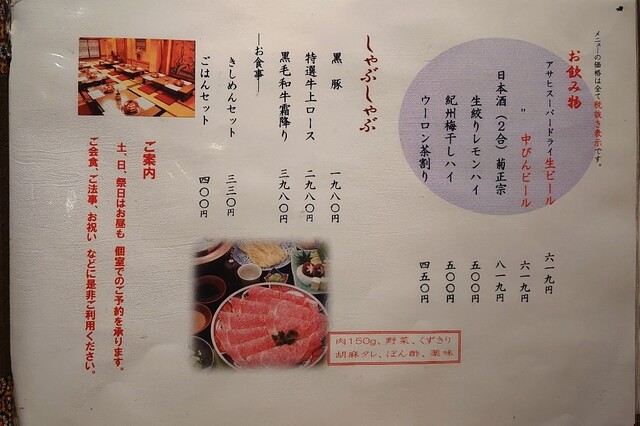 メニューの価格は全て税抜き表示です。
お飲み物
アサヒスーパードライ生ビール 六一九円
〃 中びんビール 六一九円
日本酒(2合)菊正宗 八一九円
生絞りレモンハイ 五〇〇円
紀州梅干しハイ 五〇〇円
ウーロン茶割り 四五〇円
しゃぶしゃぶ
黒豚 一九八〇円
特選牛上ロース 二九八〇円
黒毛和牛霜降り 三九八〇円
―お食事―
きしめんセット 三三〇円
ごはんセット 四〇〇円
肉150g、野菜、くずきり
胡麻タレ、ぽん酢、薬味
ご案内
土、日、祭日はお昼も 個室でのご予約を承ります。
ご会食、ご法事、お祝い などに是非ご利用ください。